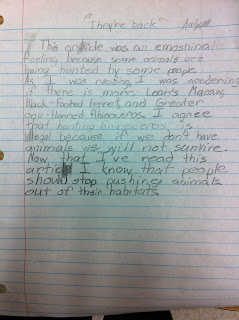 "They're back"
This article was an emoshinal
feeling because some animals are
being hunted by some people.
As I was reading, I was wondering
if there is more Lear's Macaw,
Black-footed ferret, and Greater
one-Horned Rhinoceros. I agree
that hunting rhinoceros is
illegal because if we don't have
animals we will not survive.
Now that I've read this
article I know that people
should stop pushing animals
out of their habitats.